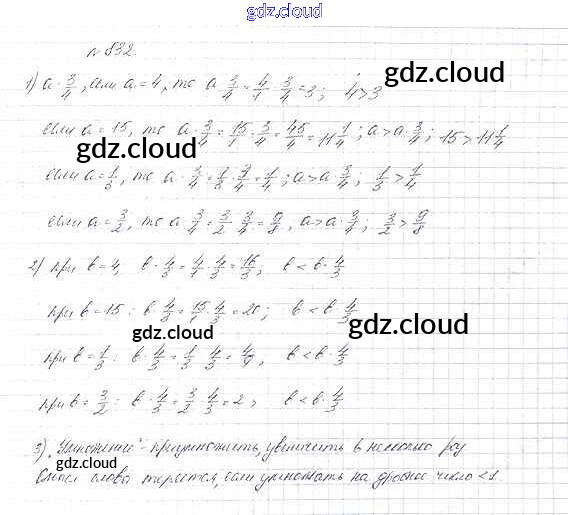 gdz.cloud
№ 832.
1) a · 3/4, если a = 4, то a 3/4 = 4/1 · 3/4 = 3; 4 > 3
gdz.cloud
если a = 15, то a · 3/4 = 15/1 · 3/4 = 45/4 = 11 1/4; a > a · 3/4; 15 > 11 1/4
gdz.cloud
если a = 1/3, то a · 3/4 = 1/3 · 3/4 = 1/4; a > a · 3/4; 1/3 > 1/4
если a = 3/2, то a · 3/4 = 3/2 · 3/4 = 9/8, a > a · 3/4; 3/2 > 9/8
gdz.cloud
2) при b = 4, b · 4/3 = 4/1 · 4/3 = 16/3, b < b · 4/3
при b = 15: b · 4/3 = 15/1 · 4/3 = 20; b < b · 4/3
gdz.cloud
gdz.cloud
при b = 1/3: b · 4/3 = 1/3 · 4/3 = 4/9, b < b · 4/3
при b = 3/2: b · 4/3 = 3/2 · 4/3 = 2, b < b · 4/3
gdz.cloud
3) „Умножение" - приумножить, увеличить в несколько раз
gdz.cloud
Смысл слова теряется, если умножать на дробное число < 1.
gdz.cloud